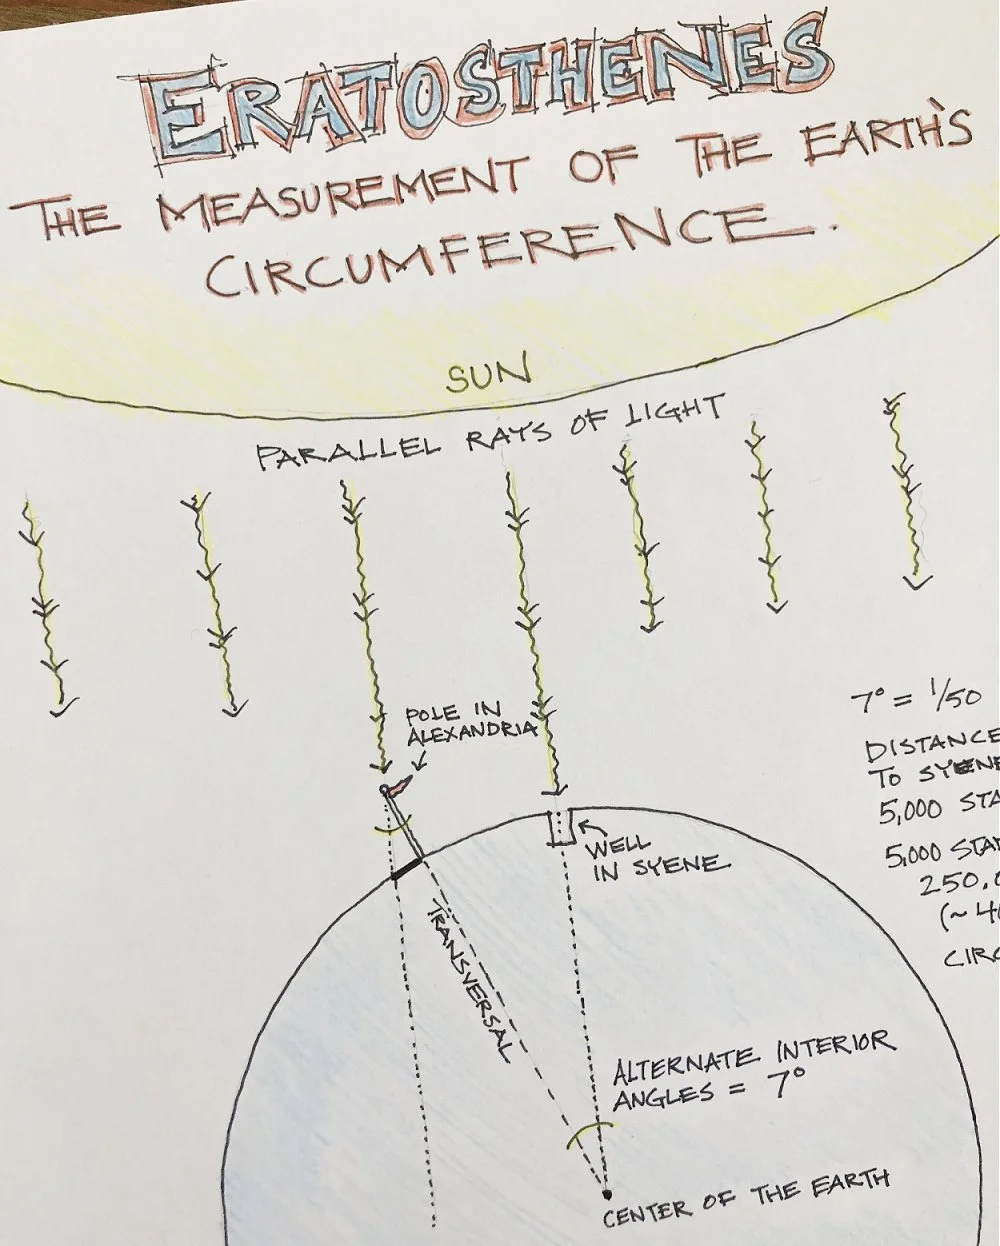 ERATOSTHENES
THE MEASUREMENT OF THE EARTH'S
CIRCUMFERENCE.
SUN
PARALLEL RAYS OF LIGHT
POLE IN
ALEXANDRIA
7° = 1/50
DISTANCE
TO SYENE
5,000 STA
5,000 STA
250,
(~ 4
CIRC
WELL
IN SYENE
TRANSVERSAL
ALTERNATE INTERIOR
ANGLES = 7°
CENTER OF THE EARTH